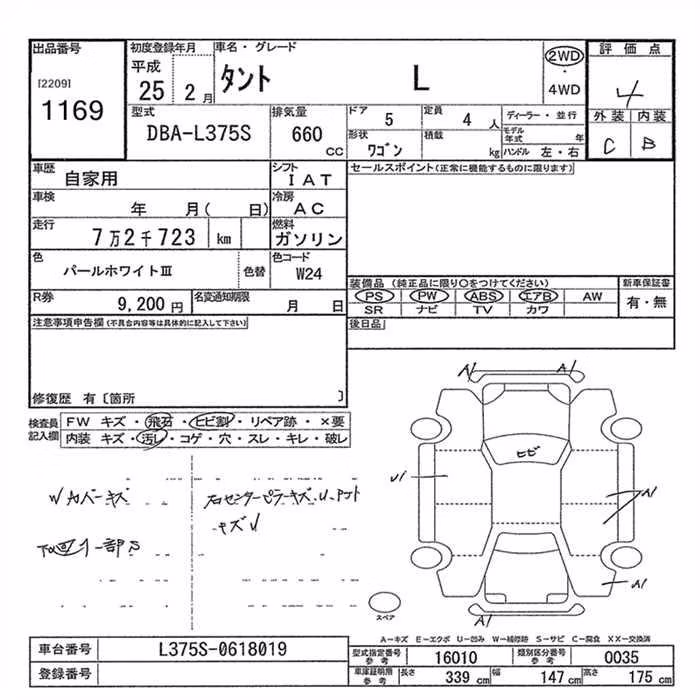 出品番号
[2209]
1169
初度登録年月
平成
25 2月
車名・グレード
タント L
2WD
・
4WD
評価点
4
外装 内装
C B
型式
DBA-L375S
排気量
660
CC
ドア 5
定員 4 人
形状 ワゴン
積載 kg
ディーラー・並行
モデル年式 年
ハンドル 左・右
車歴 自家用
シフト IAT
車検 年 月( 日)
冷房 AC
走行 7万2千723 km
燃料 ガソリン
色 パールホワイトⅢ 色替
色コード W24
R券 9,200円
名変通知期限 月 日
セールスポイント(正常に機能するものに限ります)
装備品 (純正品に限り○をつけてください)
PS PW ABS エアB AW
SR ナビ TV カワ
新車保証書
有・無
後日品
注意事項申告欄(不具合内容等は具体的に記入して下さい)
修復歴 有〔箇所 〕
検査員記入欄
FW キズ・飛石・ヒビ割・リペア跡・×要
内装 キズ・汚レ・コゲ・穴・スレ・キレ・破レ
キズU
A1 A1
ヒビ
U1
A1
A1
A1
スペア
A-キズ E-エクボ U-凹み W-補修跡 S-サビ C-腐食 XX-交換済
車台番号 L375S-0618019
登録番号
型式指定番号 参考 16010
類別区分番号 参考 0035
車庫証明用 参考 長さ 339 cm 幅 147 cm 高さ 175 cm